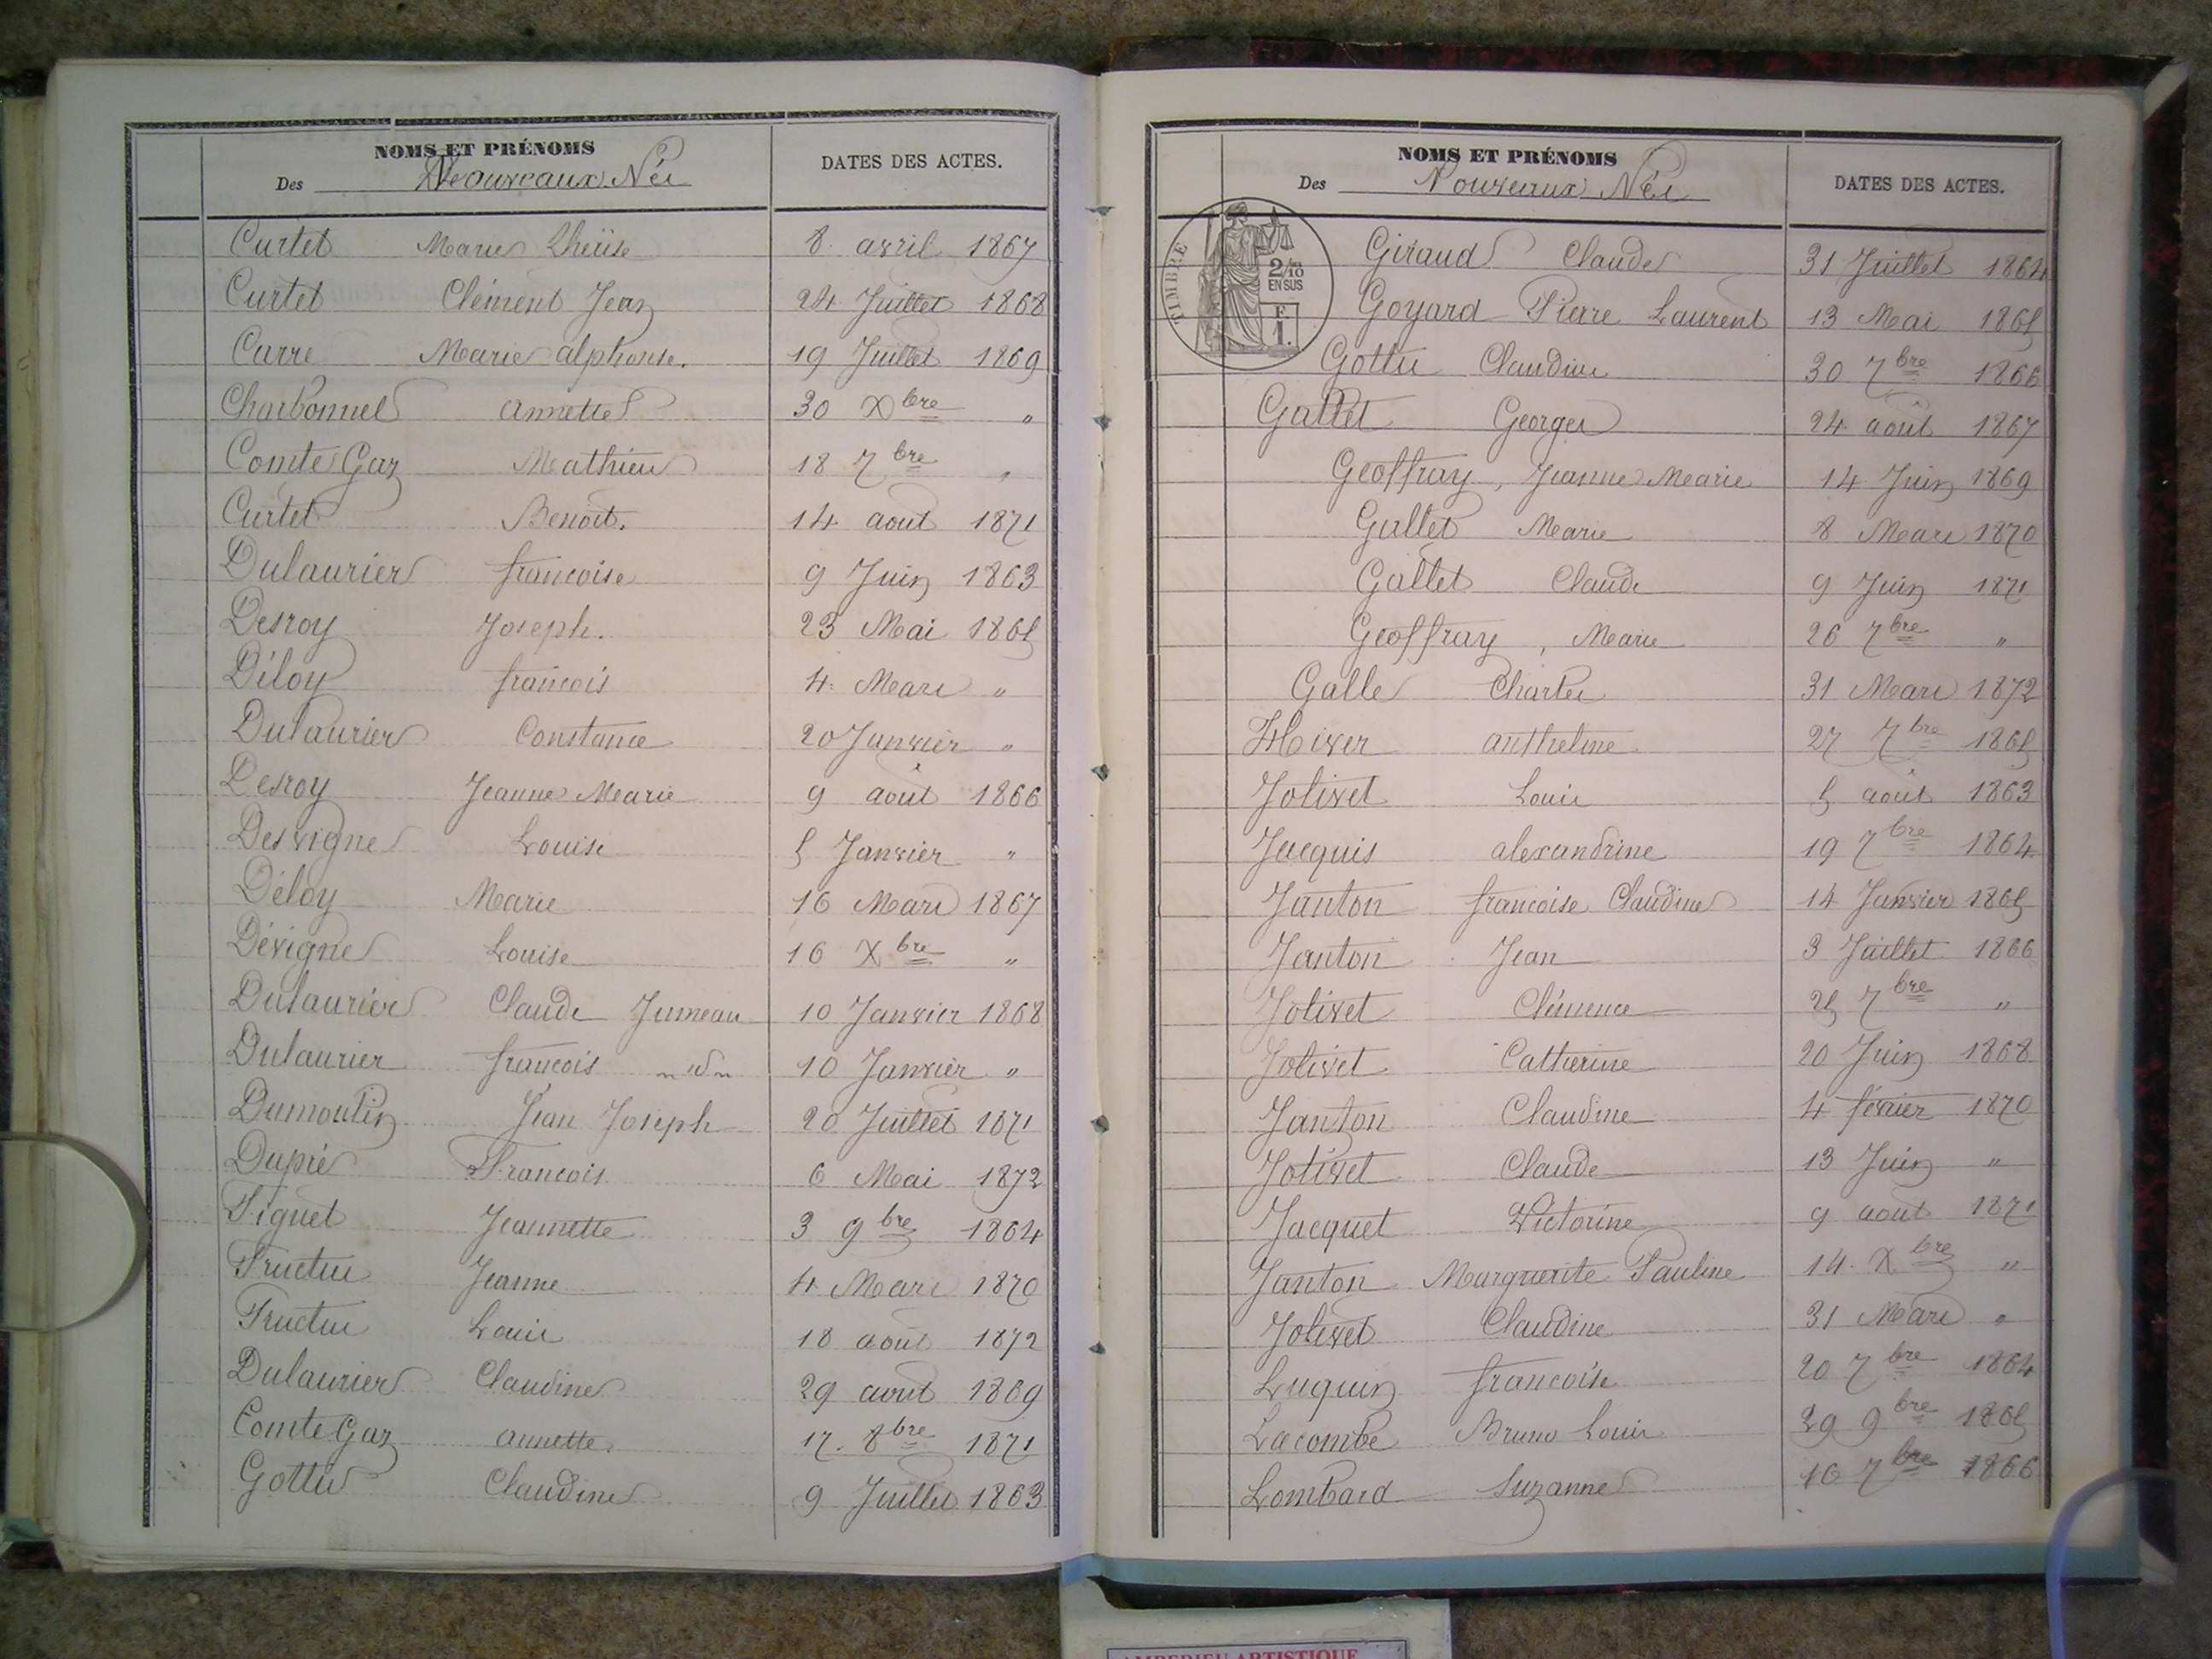 NOMS ET PRÉNOMS
Des Nouveaux Nés
DATES DES ACTES.
Curtet Marie Thérèse 8 avril 1867
Curtet Clément Jean 24 Juillet 1868
Carre Marie alphonse. 19 Juillet 1869
Charbonnel annette 30 Xbre "
Comte Gaz Mathieu 18 7bre "
Curtet Benoit. 14 aout 1871
Dulaurier francoise 9 Juin 1863
Desroy Joseph. 23 Mai 1865
Déloy francois 4 Mars "
Dulaurier Constance 20 Janvier "
Desroy Jeanne Marie 9 août 1866
Desvigne Louise 5 Janvier "
Déloy Marie 16 Mars 1867
Dévigne Louise 16 Xbre "
Dulaurier Claude Jumeau 10 Janvier 1868
Dulaurier francois id 10 Janvier "
Dumoulin Jean Joseph 20 Juillet 1871
Dupré Francois 6 Mai 1872
Figuet Jeannette 3 9bre 1864
Fructus Jeanne 4 Mars 1870
Fructus Louis 18 août 1872
Dulaurier Claudine 29 avril 1869
Comte Gaz annette. 17. 8bre 1871
Gottu Claudine 9 Juillet 1863
NOMS ET PRÉNOMS
Des Nouveaux Nés
DATES DES ACTES.
TIMBRE
2/10
EN SUS
F
1.
Giraud Claude 31 Juillet 1864
Goyard Pierre Laurent 13 Mai 1865
Gottu Claudine 30 7bre 1866
Gallet Georges 24 août 1867
Geoffray, Jeanne Marie 14 Juin 1869
Gallet Marie 8 Mars 1870
Gallet Claude 9 Juin 1871
Geoffray, Marie 26 7bre "
Galle Charles 31 Mars 1872
Hiver anthelme 27 7bre 1865
Jolivet Louis 5 août 1863
Jacquis alexandrine 19 7bre 1864
Janton francoise Claudine 14 Janvier 1865
Janton Jean 3 Juillet 1866
Jolivet Clémence 25 7bre "
Jolivet Catherine 20 Juin 1868
Janton Claudine 4 février 1870
Jolivet Claude 13 Juin "
Jacquet Victorine 9 aout 1871
Janton Marguerite Pauline 14. Xbre "
Jolivet Claudine 31 Mars "
Luquin francoise 20 7bre 1864
Lacombe Bruno Louis 29 9bre 1865
Lombard Suzanne 16 7bre 1866
AMBERIEU ARTISTIQUE